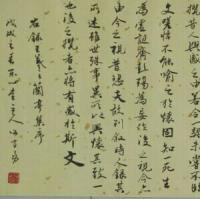 攬昔人興感之由若合一契
文嗟悼不能喻之於懷固知一死生
為虛誕齊彭殤為妄作後之視今亦
由今之視昔悲夫故列敘時人錄其
所述雖世殊事異所以興懷其致一
也後之攬者亦將有感於斯文
右錄王羲之蘭亭集序
戊戌之夏